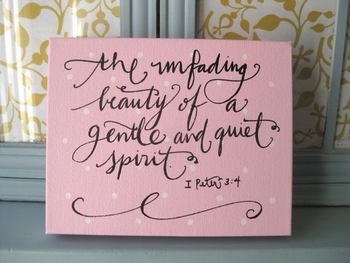 the unfading
beauty of a
gentle and quiet
spirit.
I Peter 3:4